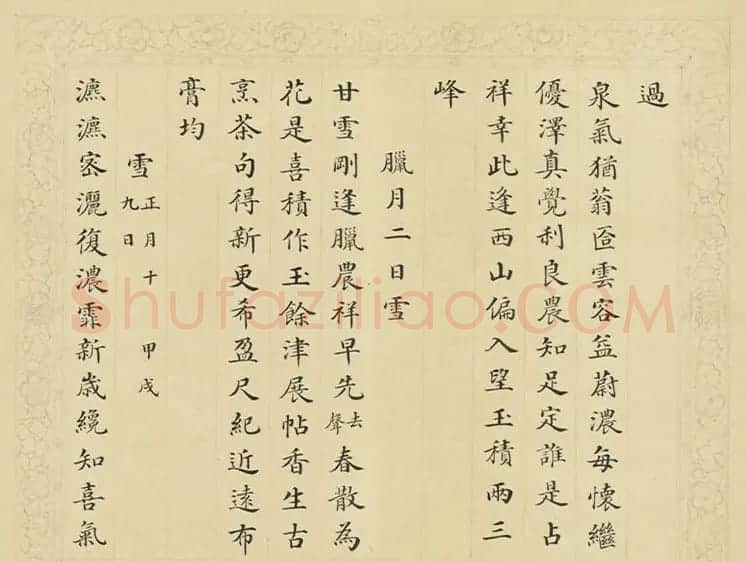 過
泉氣猶蓊匼雲容益蔚濃每懷繼
優澤真覺利良農知足定誰是占
祥幸此逢西山偏入望玉積兩三
峰
臘月二日雪
甘雪剛逢臘農祥早先去聲春散為
花是喜積作玉餘津展帖香生古
烹茶句得新更希盈尺紀近遠布
膏均
雪正月十九日 甲戌
瀌瀌密灑復濃霏新歲纔知喜氣
Shufaziliao.COM